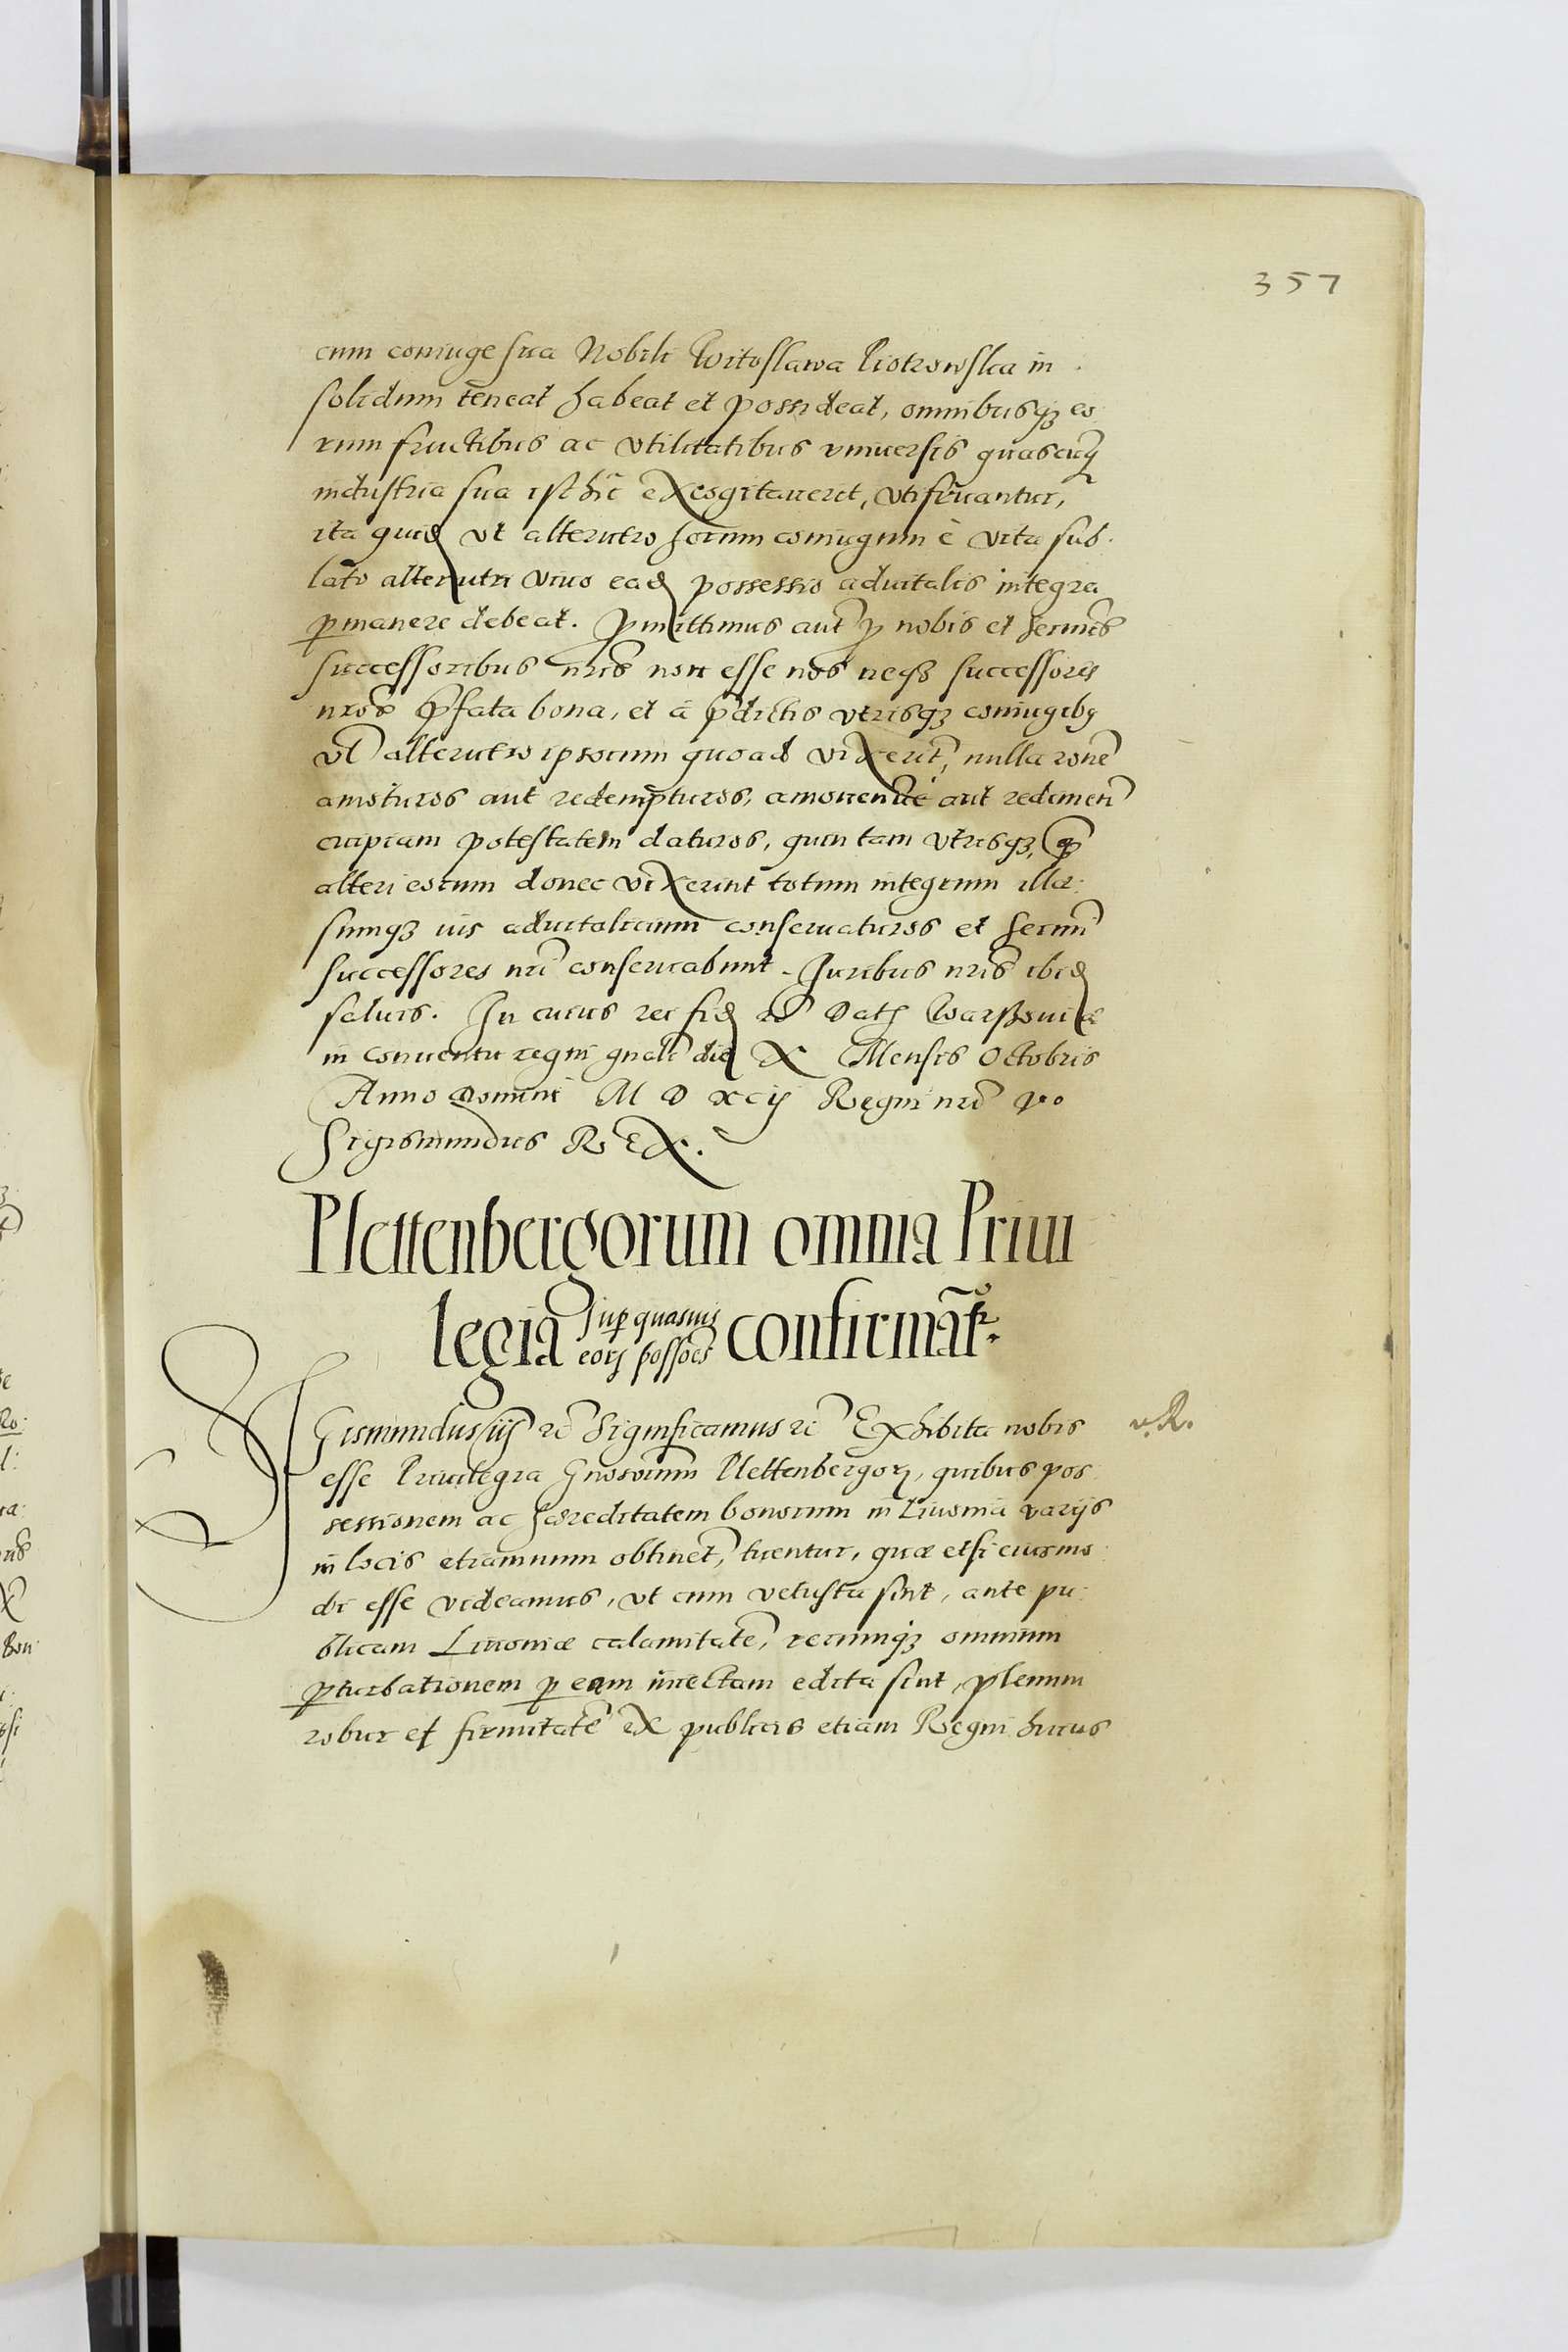 357
cum coniuge sua Nobili Witoslawa Piotrowska in
solidum teneat habeat et possideat, omnibusq3 eo
rum fructibus ac vtilitatibus vniuersis quascuq
industria sua isthic excogitauerit, vtifruantur,
ita quid vt alterutro horum coniugum è vita sub:
lato alterutri viuo ead possessio aduitalis integra
pmanere debeat. Pmittimus aut p nobis et sermis
successoribus nris non esse nos neq3 successores
nros pfata bona, et à pdictis vtrisq3 coniugib9
vl alterutro ipsorum quoad vixerit, nulla rone
amoturos aut redempturos, amouendi aut redimen
cuipiam potestatem daturos, quin tam vtrisq3, q
alteri eorum donec vixerint totum integrum illae:
sumq3 ius aduitalicium conseruaturos et sermi
successores nri conseruabunt. Juribus nris ibid
saluis. In cuius rei fid rc Dat Warssouiae
in conuentu regni gnali die X Mensis Octobris
Anno Domini M D xcij Regni nri vo
Sigismundus REX.
Plettenbergorum omnia Priui
legia sup quasuis eor possoes confirmatr.
SIGismundus iij rc Significamus rc Exhibita nobis
v. R.
esse Priuilegia Gnosorum Plettenbergor, quibus pos
sessionem ac haereditatem bonorum in Liuonia varijs
in locis etiamnum obtinet, tuentur, quae etsi eiusmo:
di esse videamus, vt cum vetusta sint, ante pu:
blicam Liuoniae calamitate, rerumq3 omnium
pturbationem p eam inuectam edita sint, plenum
robur et firmitate ex publicis etiam Regni huius